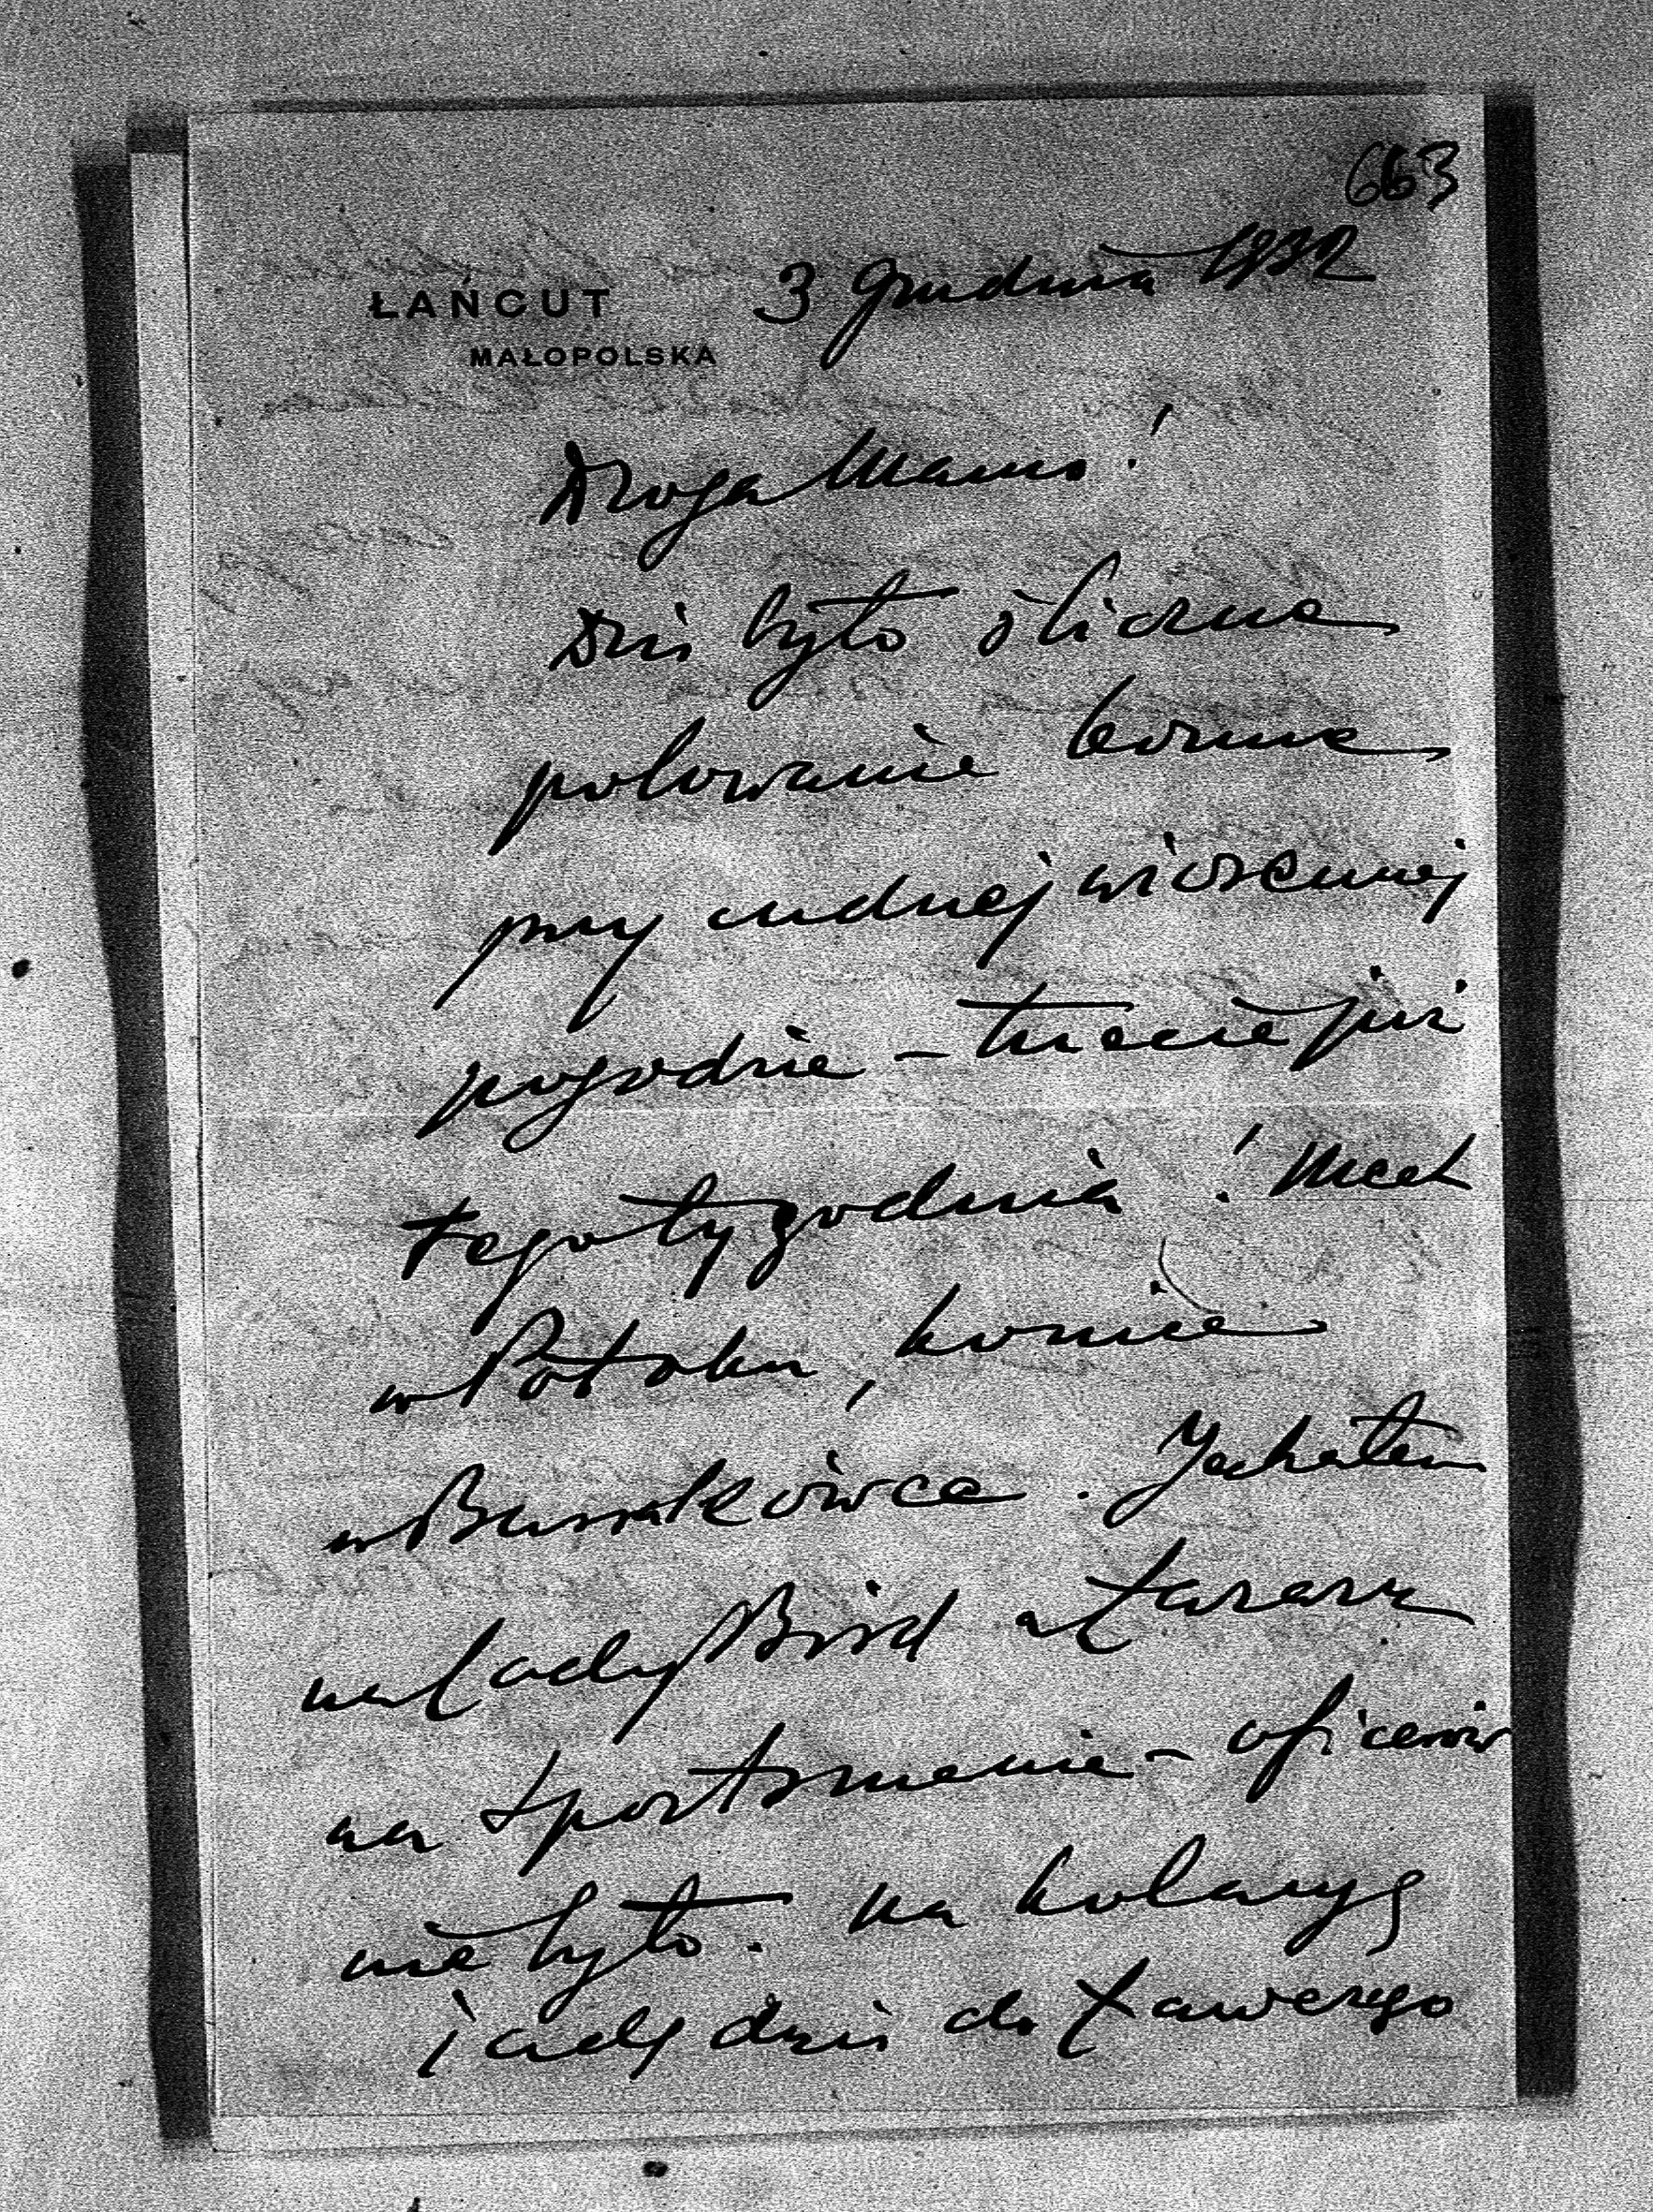 663
ŁAŃCUT 3 grudnia 1932
MAŁOPOLSKA
Droga Mamo!
Dziś było śliczne
polowanie konne
przy cudnej wiosennej
pogodzie – trzecie już
tego tygodnia! Meet
w Potoku, koniec
w Budach. Jechałem
na Lady Bird a
na Sportsmenie – oficerów
nie było. na kolację
iadę dziś do Xawerego